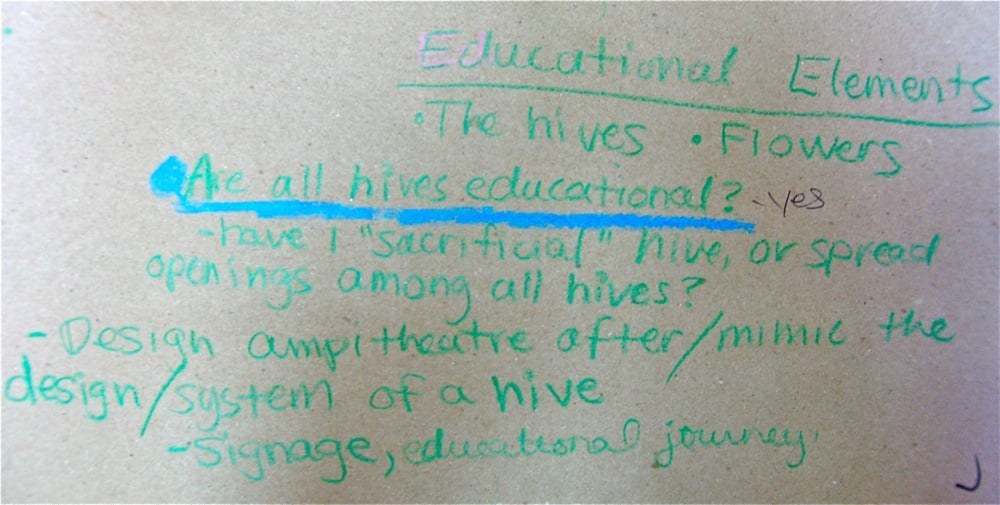 Educational Elements
• The hives • Flowers
Are all hives educational? - yes
- have 1 "sacrificial" hive, or spread
openings among all hives?
- Design ampitheatre after/mimic the
design/system of a hive
- Signage, educational journey